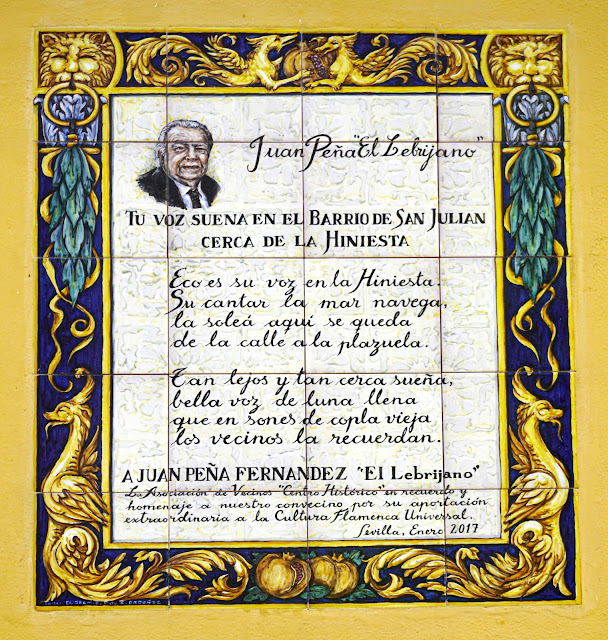 Juan Peña "El Lebrijano"
TU VOZ SUENA EN EL BARRIO DE SAN JULIAN
CERCA DE LA HINIESTA
Eco es su voz en la Hiniesta.
Su cantar la mar navega,
la soleá aquí se queda
de la calle a la plazuela.
Tan lejos y tan cerca sueña,
bella voz de luna llena
que en sones de copla vieja
los vecinos la recuerdan.
A JUAN PEÑA FERNANDEZ "El Lebrijano"
La Asociación de Vecinos "Centro Histórico" en recuerdo y
homenaje a nuestro convecino por su aportación
extraordinaria a la Cultura Flamenca Universal.
Sevilla, Enero 2017